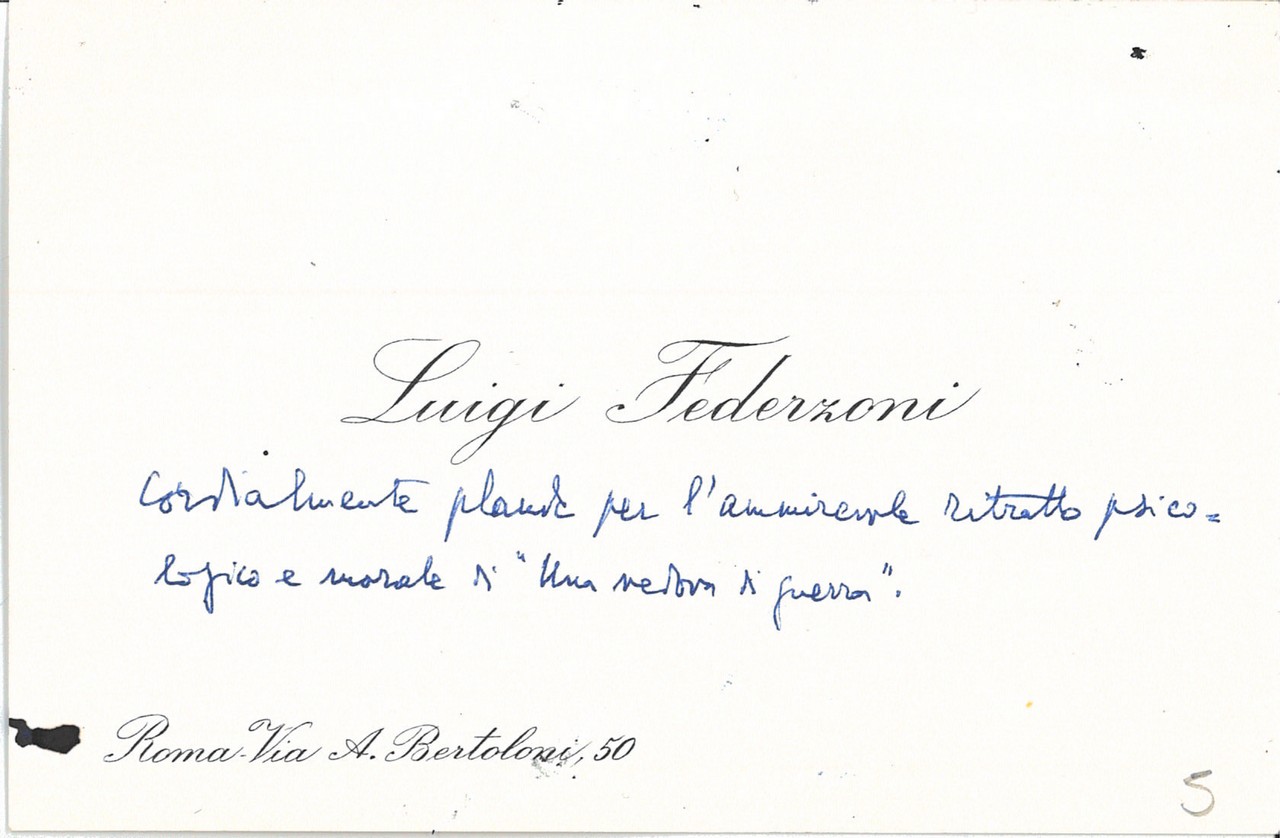 Luigi Federzoni
Cordialmente plaude per l'ammirevole ritratto psico=
logico e morale di "Una vedova di guerra".
Roma - Via A. Bertoloni, 50
5